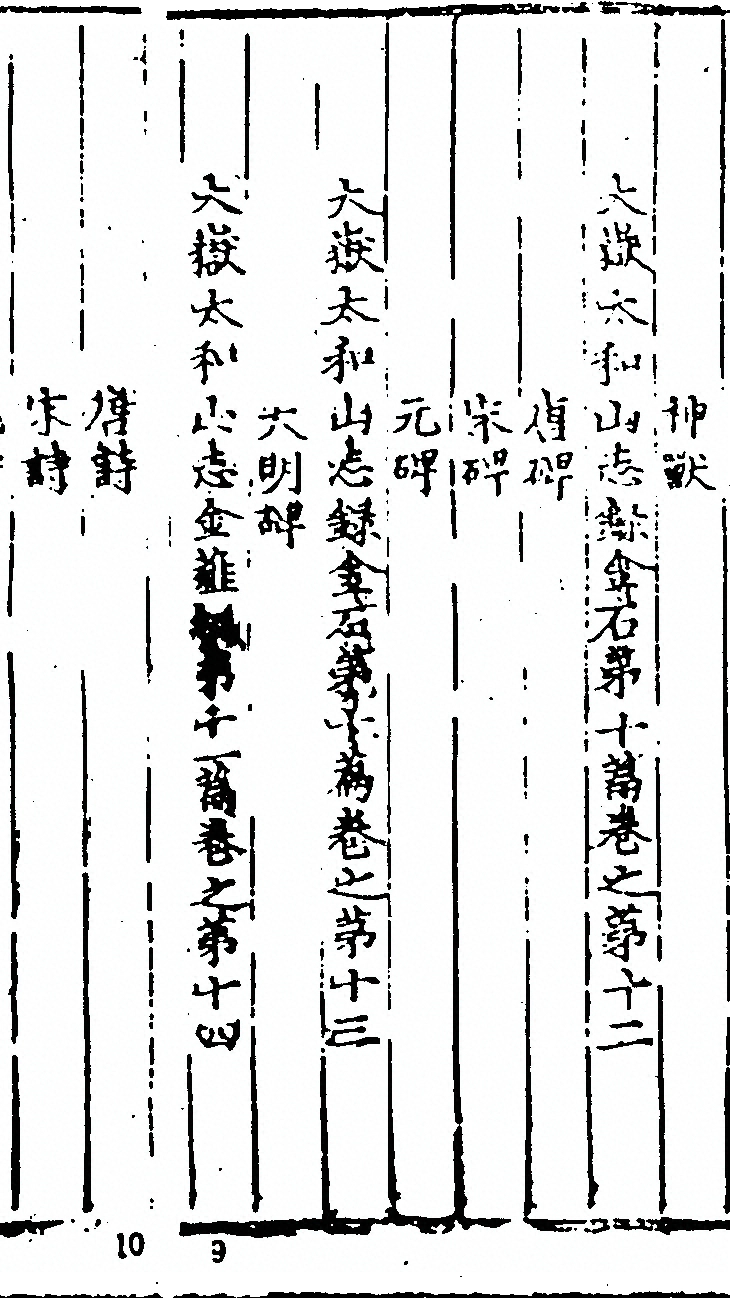 神獸
大嶽太和山志錄金石第十篇卷之第十二
宋碑
元碑
大嶽太和山志錄金石第十篇卷之第十三
大明碑
大嶽太和山志金薤第十一篇卷之第十四
唐詩
宋詩
9
10